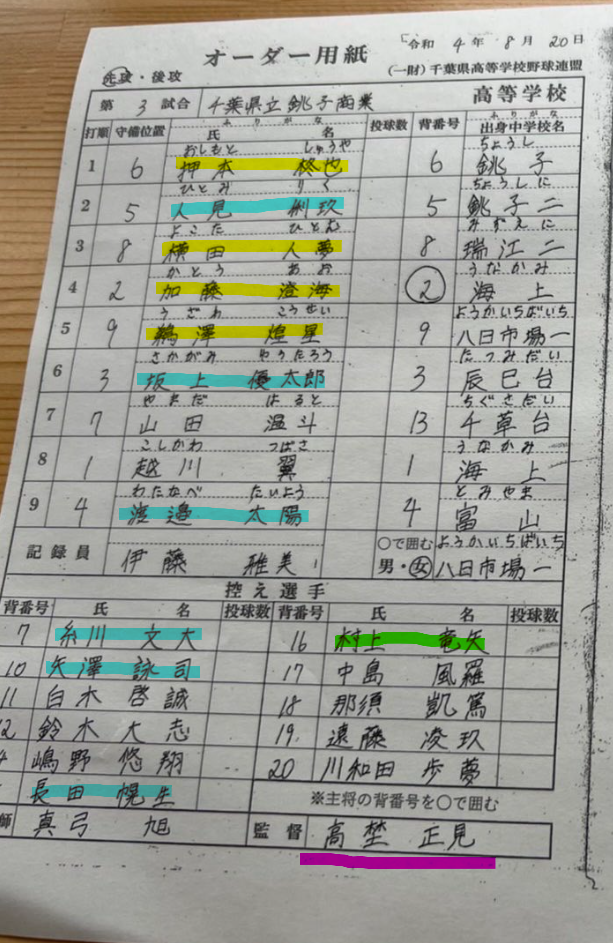 オーダー用紙 「令和 4年 8月 20日
先攻・後攻 (一財)千葉県高等学校野球連盟
第 3 試合 千葉県立銚子商業 高等学校
打順 守備位置 ふりがな 氏 名 投球数 背番号 ふりがな 出身中学校名
おしもと しゅうや ちょうし
1 6 押本 柊也 6 銚子
ひとみ りく ちょうしに
2 5 人見 利玖 5 銚子二
よこた ひとむ みずえに
3 8 横田 人夢 8 瑞江二
かとう あお うなかみ
4 2 加藤 澄海 2 海上
うざわ こうせい ようかいちばいち
5 9 鵜澤 煌星 9 八日市場一
さかがみ ゆうたろう たつみだい
6 3 坂上 優太郎 3 辰巳台
やまだ はると ちぐさだい
7 7 山田 温斗 13 千草台
こしかわ つばさ うなかみ
8 1 越川 翼 1 海上
わたなべ たいよう とみやま
9 4 渡邉 太陽 4 富山
記録員 伊藤 雅美 ○で囲む 男・女 ようかいちばいち 八日市場一
控え選手
背番号 氏 名 投球数 背番号 氏 名 投球数
7 糸川 文大 16 村上 竜矢
10 矢澤 詠司 17 中島 風羅
11 白木 啓誠 18 那須 凱篤
12 鈴木 大志 19 遠藤 凌玖
4 嶋野 悠翔 20 川和田 歩夢
長田 幌生 ※主将の背番号を○で囲む
師 真弓 旭 監督 高埜 正見